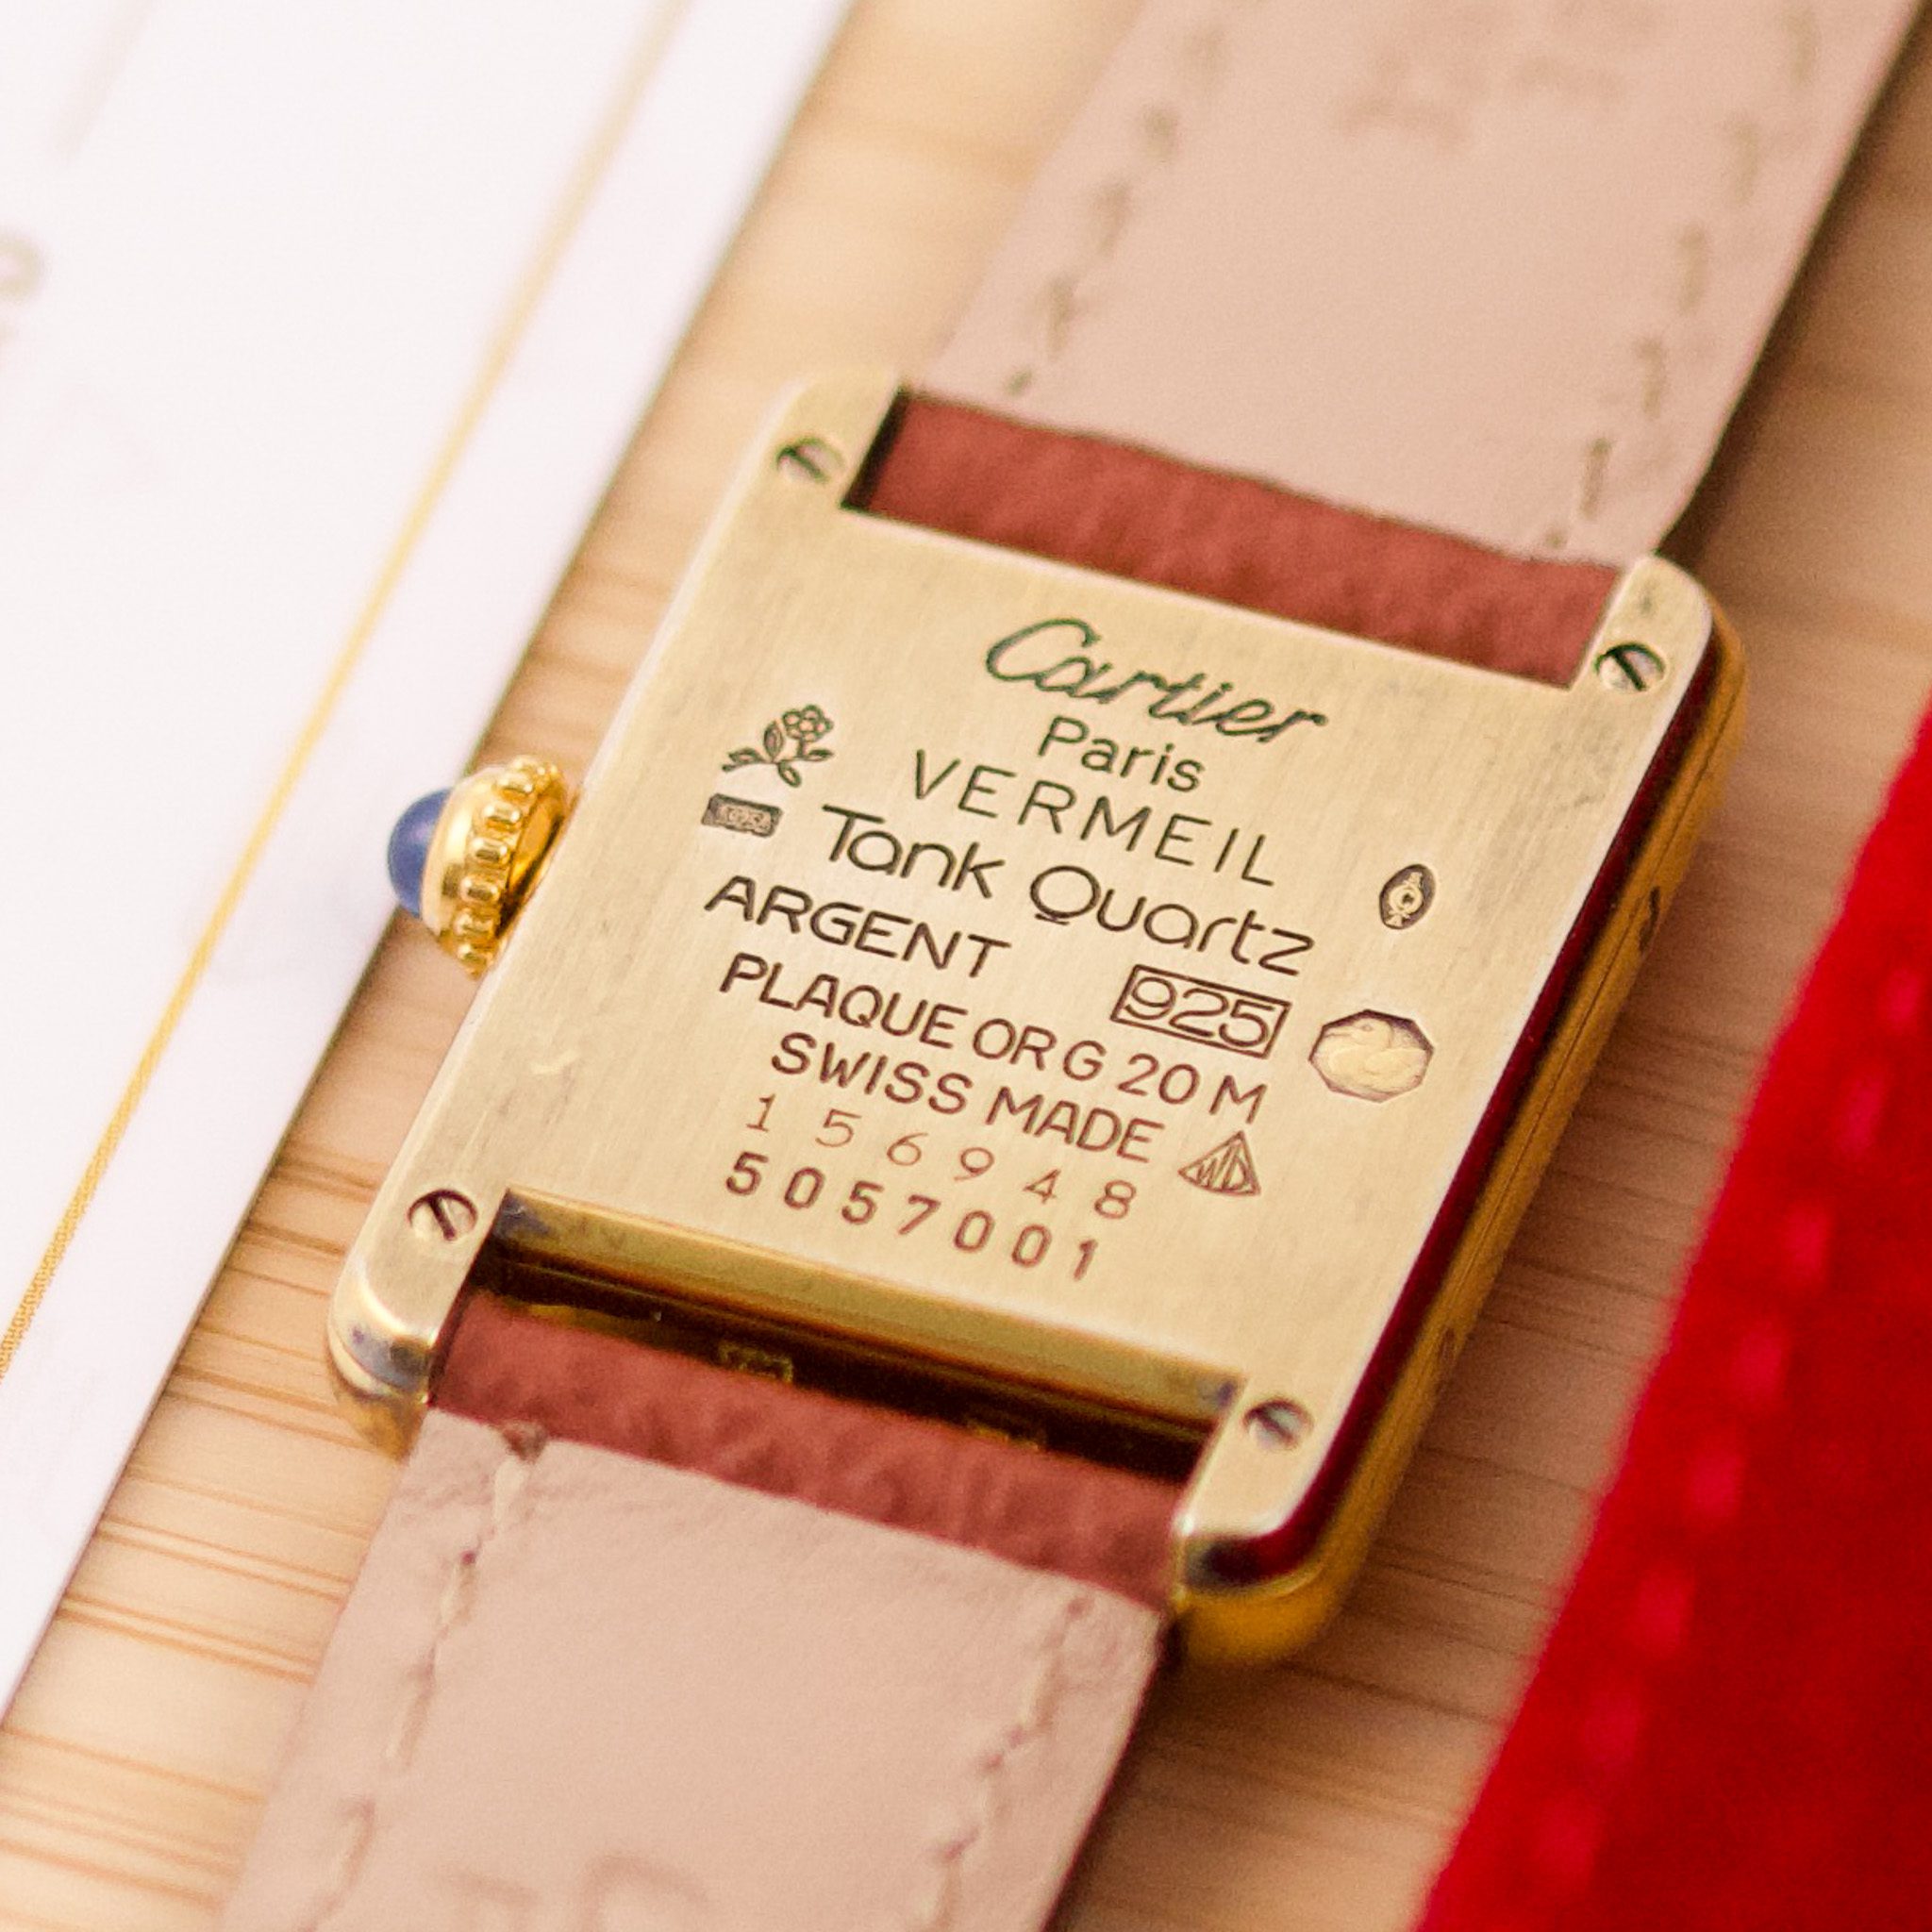 Cartier
Paris
VERMEIL
Tank Quartz
ARGENT 925
PLAQUE OR G 20 M
SWISS MADE
WD
156948
5057001